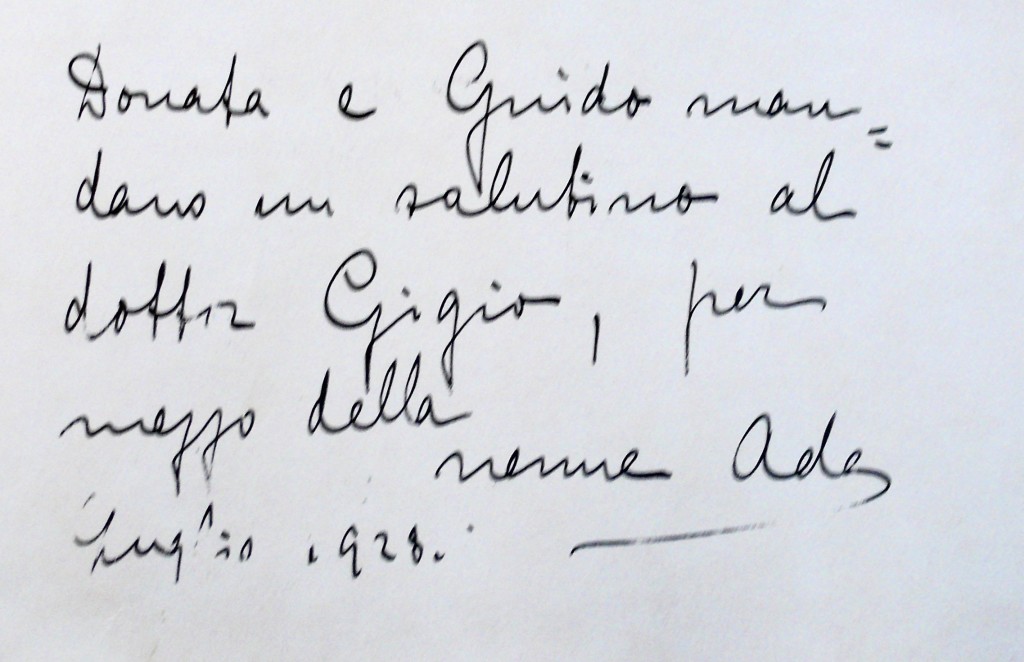 Donata e Guido man=
dano un salutino al
dottor Gigio, per
mezzo della
nenne Ada
Luglio 1928.